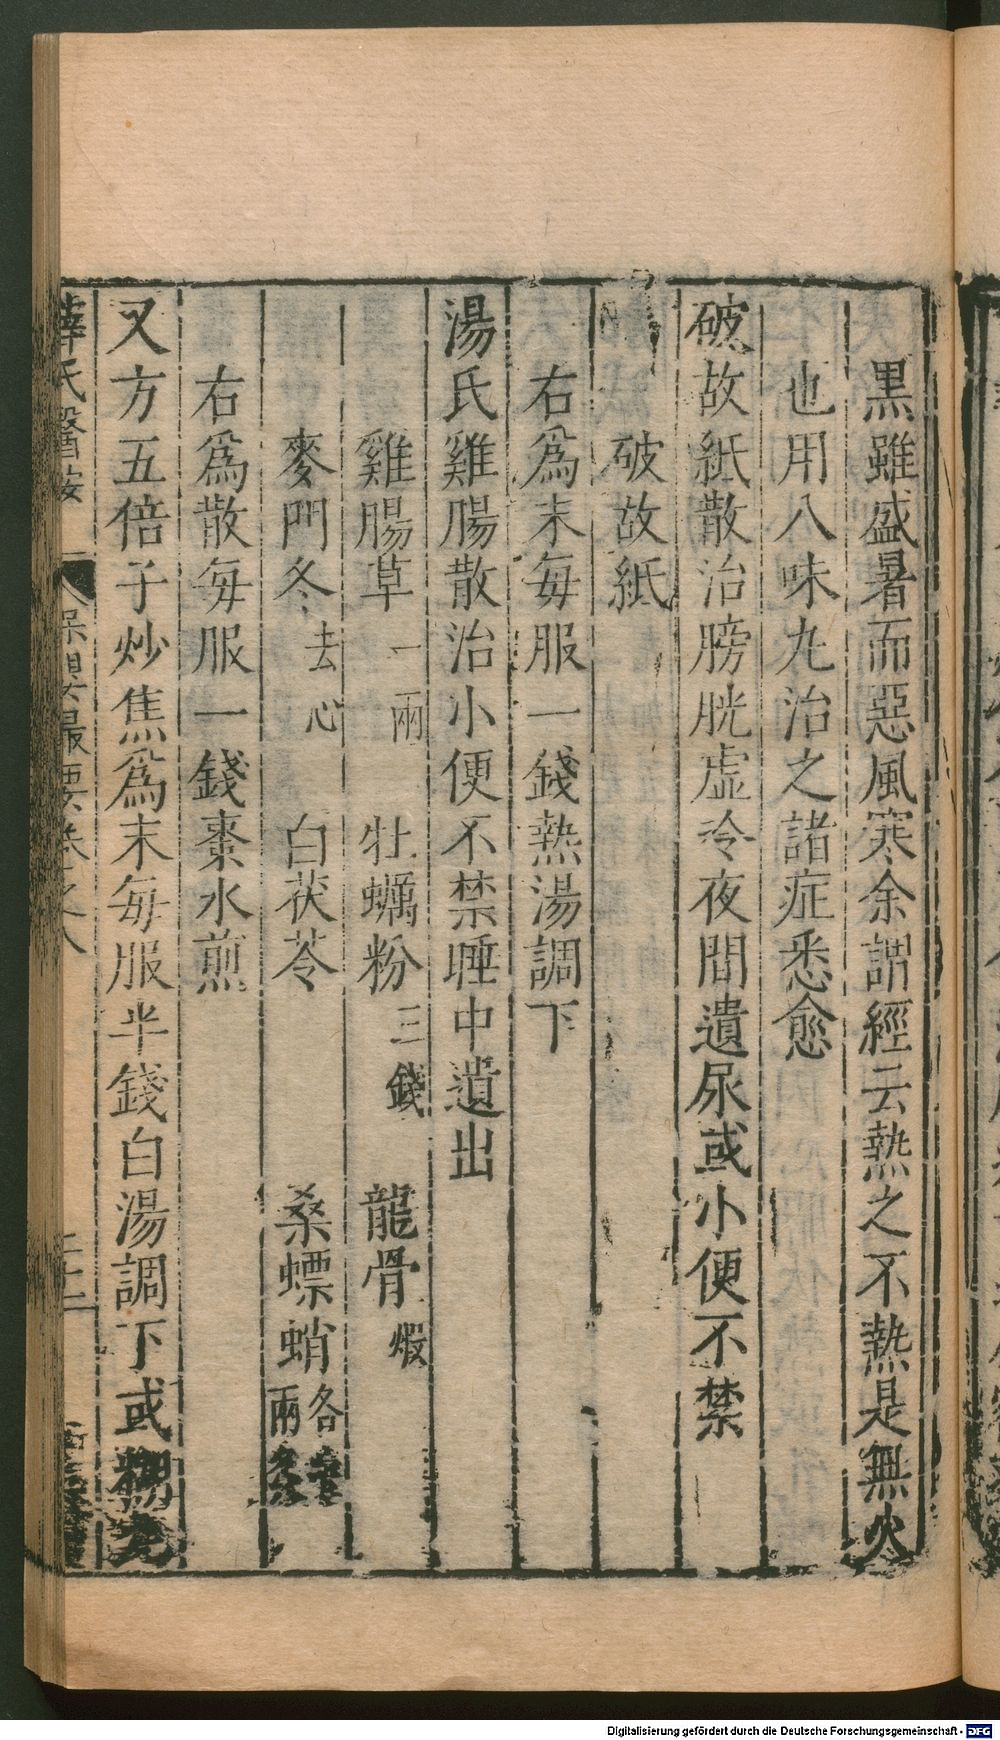 黑雖盛暑而惡風寒余謂經云熱之不熱是無火
也用八味丸治之諸症悉愈
破故紙散治膀胱虛冷夜間遺尿或小便不禁
破故紙
右爲末每服一錢熱湯調下
湯氏雞腸散治小便不禁睡中遺出
雞腸草一兩 牡蠣粉三錢 龍骨煅
麥門冬去心 白茯苓 桑螵蛸各兩
右爲散每服一錢棗水煎
又方五倍子炒焦爲末每服半錢白湯調下或
薛氏醫按 保嬰最要卷之八 二十二
Digitalisierung gefördert durch die Deutsche Forschungsgemeinschaft - DFG